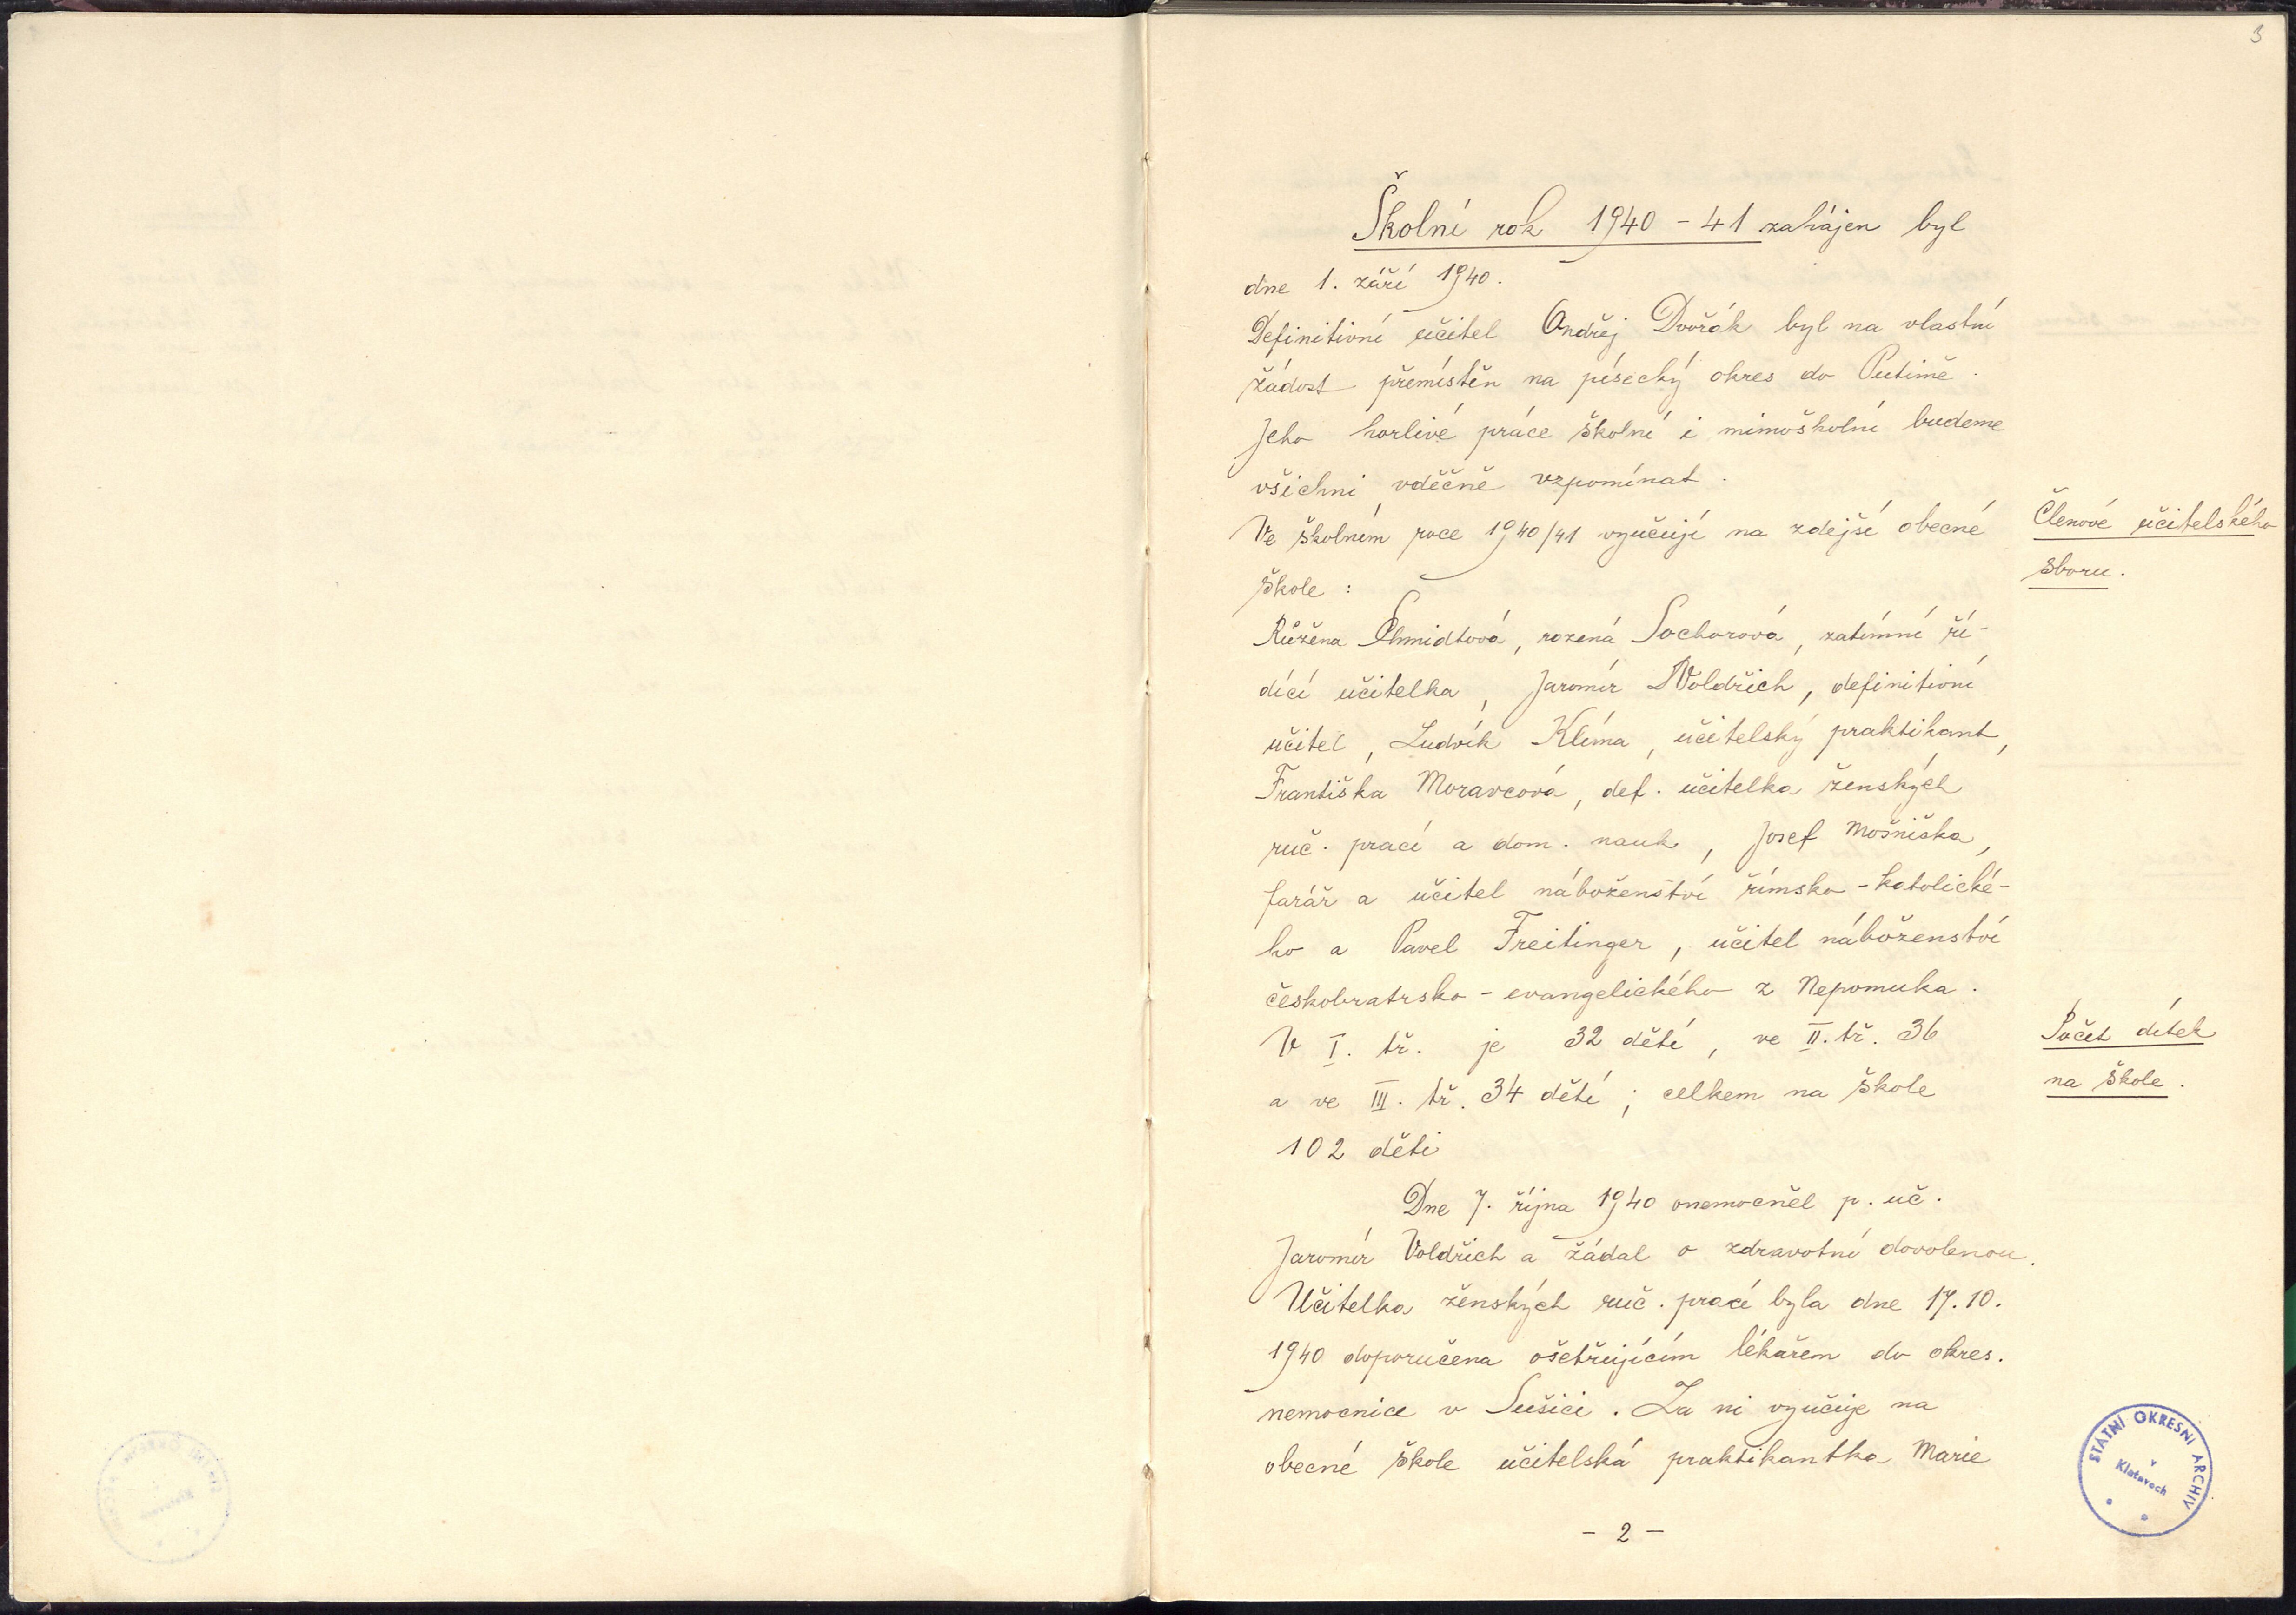 3
Školní rok 1940 - 41 zahájen byl
dne 1. září 1940.
Definitivní učitel Ondřej Dvořák byl na vlastní
žádost přemístěn na písecký okres do Putimě.
Jeho horlivé práce školní i mimoškolní budeme
všichni vděčně vzpomínat.
Ve školním roce 1940/41 vyučují na zdejší obecné
škole:
Členové učitelského
sboru.
Růžena Schmidtová, rozená Sochorová, zatímní ří-
dící učitelka, Jaromír Woldřich, definitivní
učitel, Ludvík Klíma, učitelský praktikant,
Františka Moravcová, def. učitelka ženských
ruč. prací a dom. nauk, Josef Mošnička,
farář a učitel náboženství římsko-katolické-
ho a Pavel Freitinger, učitel náboženství
českobratrsko-evangelického z Nepomuka.
V I. tř. je 32 dětí, ve II. tř. 36
a ve III. tř. 34 dětí; celkem na škole
102 děti
Počet dítek
na škole.
Dne 7. října 1940 onemocněl p. uč.
Jaromír Voldřich a žádal o zdravotní dovolenou.
Učitelka ženských ruč. prací byla dne 17. 10.
1940 doporučena ošetřujícím lékařem do okres.
nemocnice v Sušici. Za ni vyučuje na
obecné škole učitelská praktikantka Marie
- 2 -
STÁTNÍ OKRESNÍ ARCHIV
v
Klatovech